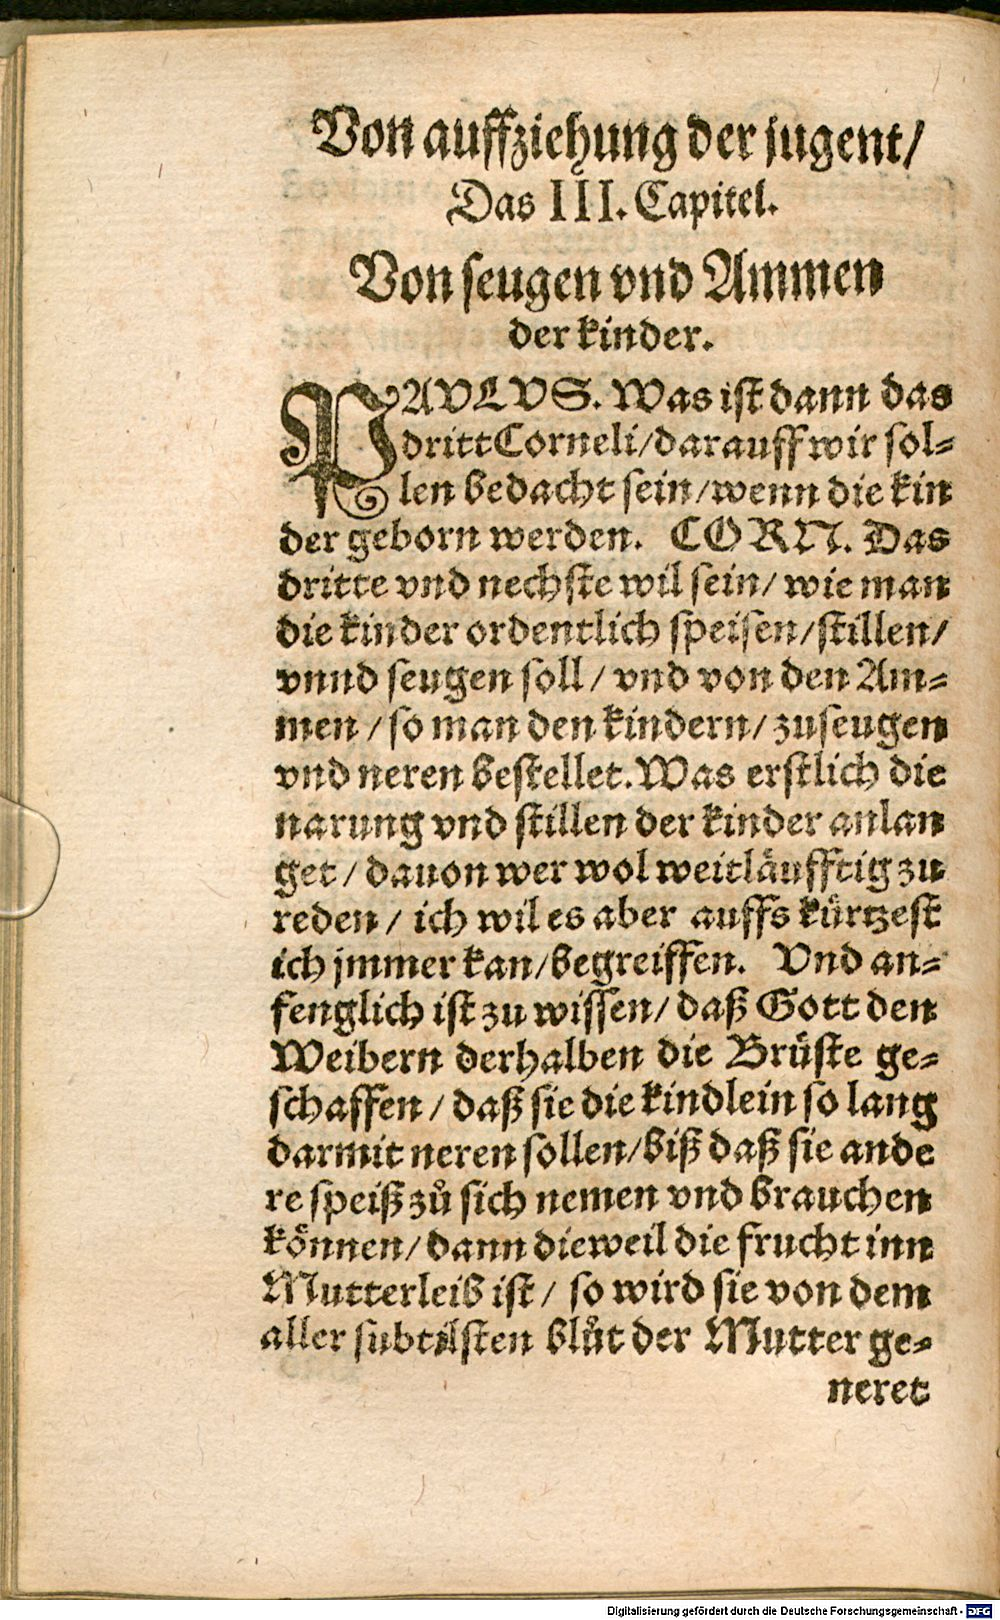 Von auffziehung der jugent/
Das III. Capitel.
Von seugen vnd Ammen
der kinder.
PAVLVS. Was ist dann das
dritt Corneli/darauff wir sol-
len bedacht sein/wenn die kin
der geborn werden. CORN. Das
dritte vnd nechste wil sein/ wie man
die kinder ordentlich speisen/stillen/
vnnd seugen soll / vnd von den Am-
men / so man den kindern/ zuseugen
vnd neren bestellet. Was erstlich die
narung vnd stillen der kinder anlan
get / dauon wer wol weitläufftig zu
reden / ich wil es aber auffs kürtzest
ich jmmer kan/begreiffen. Vnd an-
fenglich ist zu wissen/ daß Gott den
Weibern derhalben die Brüste ge-
schaffen / daß sie die kindlein so lang
darmit neren sollen/biß daß sie ande
re speiß zů sich nemen vnd brauchen
können/ dann dieweil die frucht inn
Mutterleib ist / so wird sie von dem
aller subtilsten blůt der Mutter ge-
neret
Digitalisierung gefördert durch die Deutsche Forschungsgemeinschaft - DFG